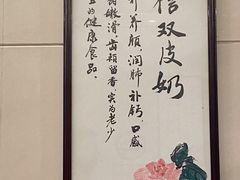 信双皮奶
养颜,润肺,补钙,口感
嫩滑,齿颊留香,实为老少
宜的健康食品。